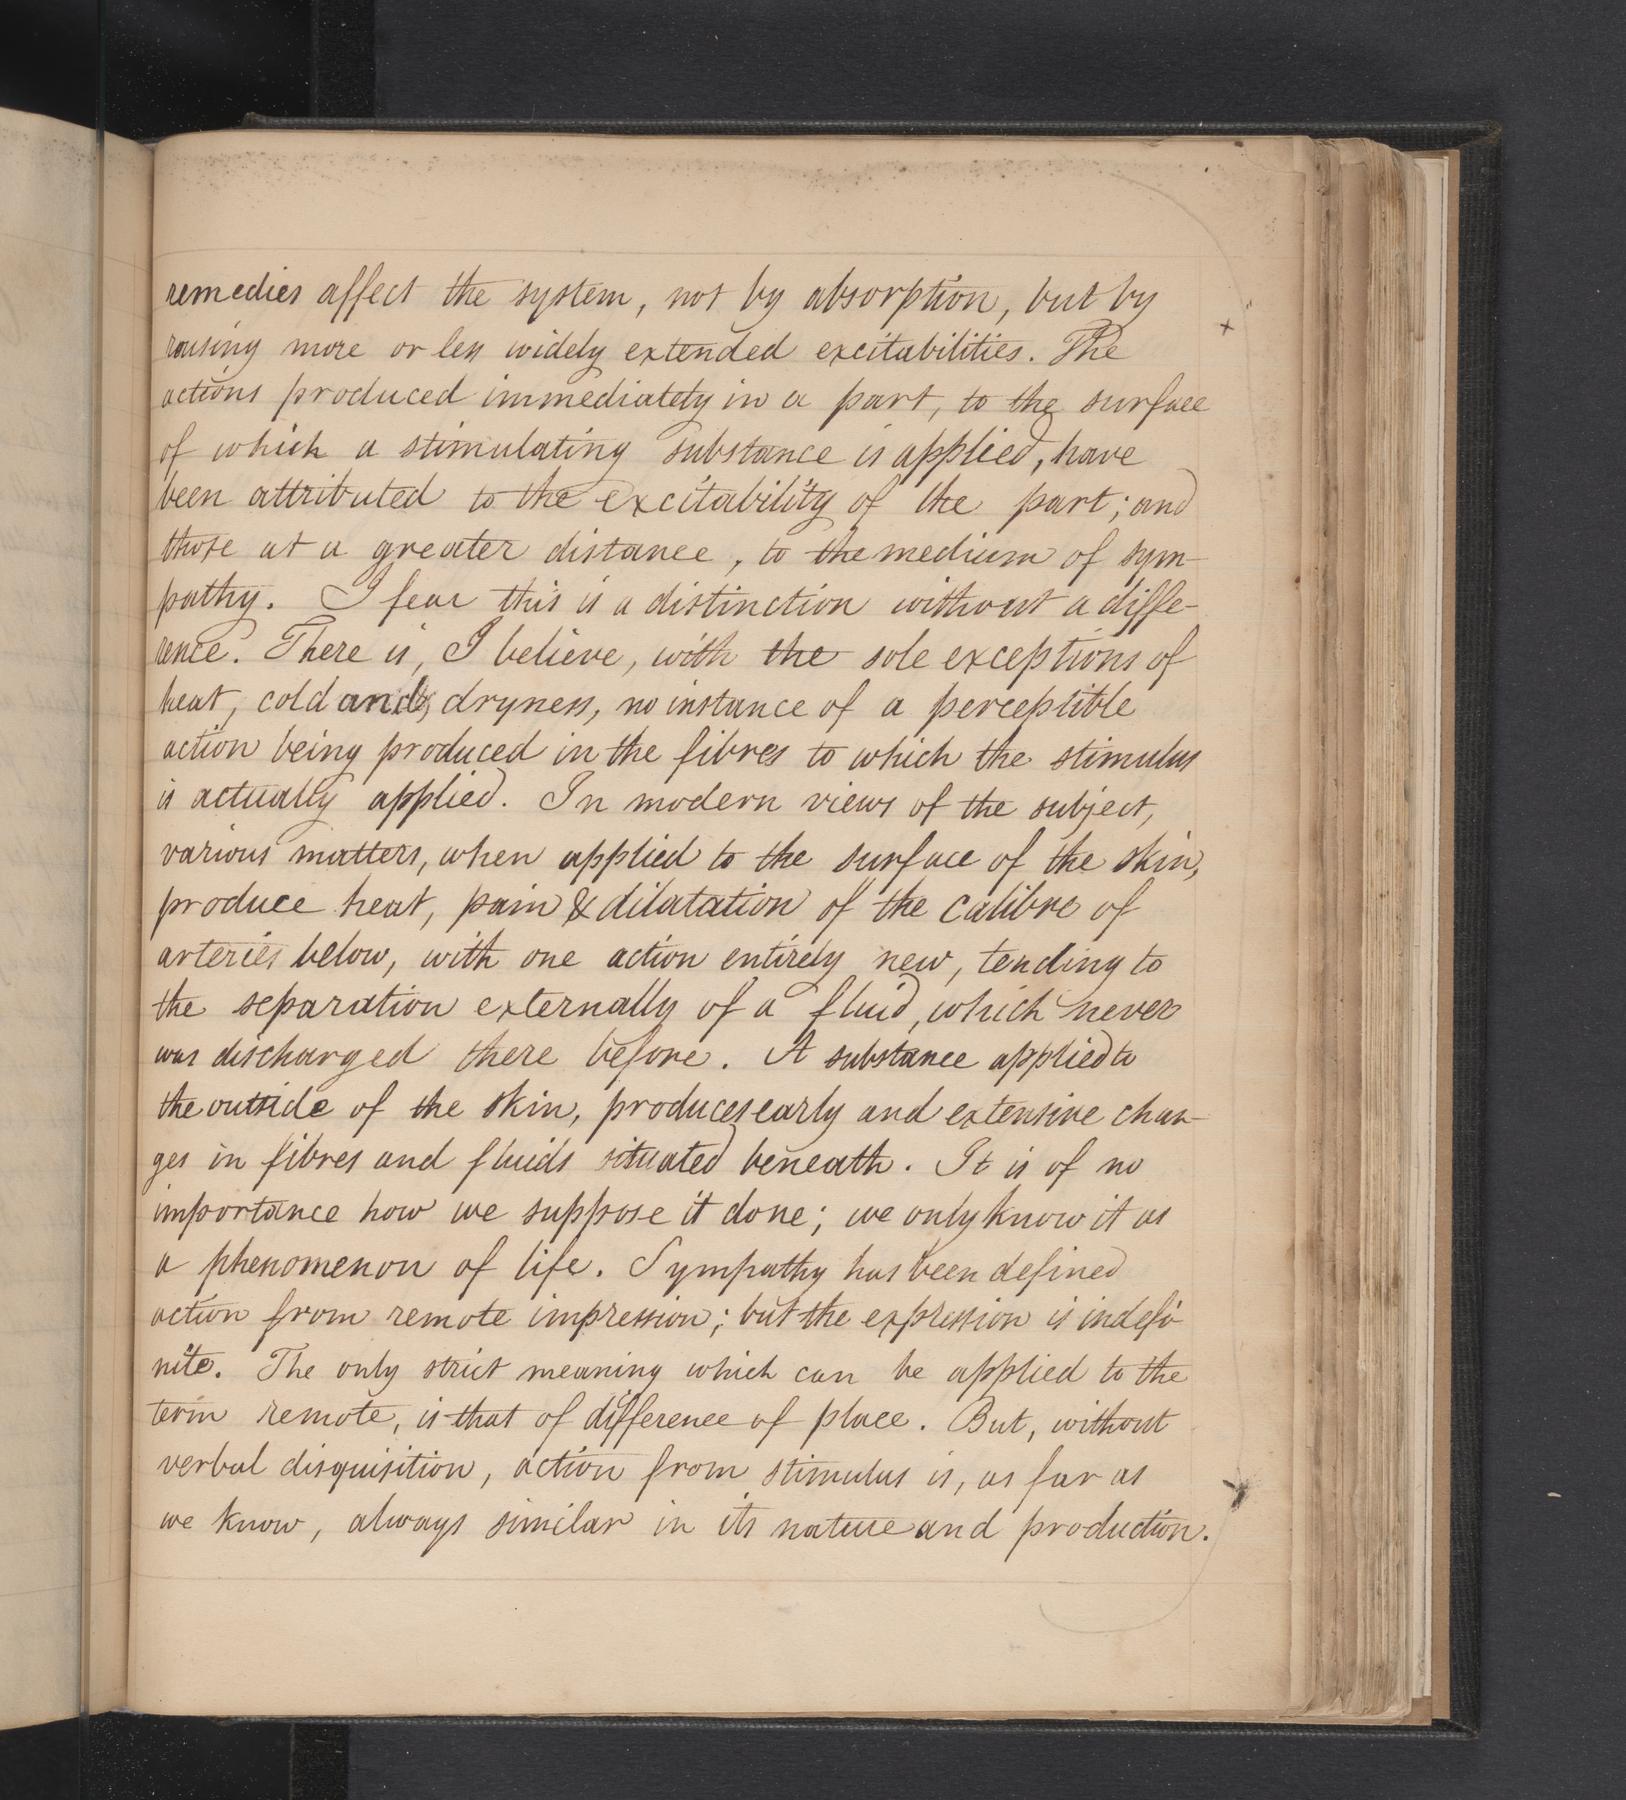 remedies affect the system, not by absorption, but by
rousing more or less widely extended excitabilities. The
actions produced immediately in a part, to the surface
of which a stimulating substance is applied, have
been attributed to the excitability of the part; and
those at a greater distance, to the medium of sym-
pathy. I fear this is a distinction without a diffe-
rence. There is, I believe, with the sole exceptions of
heat, cold and dryness, no instance of a perceptible
action being produced in the fibres to which the stimulus
is actually applied. In modern views of the subject,
various matters, when applied to the surface of the skin,
produce heat, pain & dilatation of the calibre of
arteries below, with one action entirely new, tending to
the separation externally of a fluid, which never
was discharged there before. A substance applied to
the outside of the skin, produces early and extensive chan-
ges in fibres and fluids situated beneath. It is of no
importance how we suppose it done; we only know it as
a phenomenon of life. Sympathy has been defined
action from remote impression; but the expression is indefi
nite. The only strict meaning which can be applied to the
term remote, is that of difference of place. But, without
verbal disquisition, action from stimulus is, as far as
we know, always similar in its nature and production.